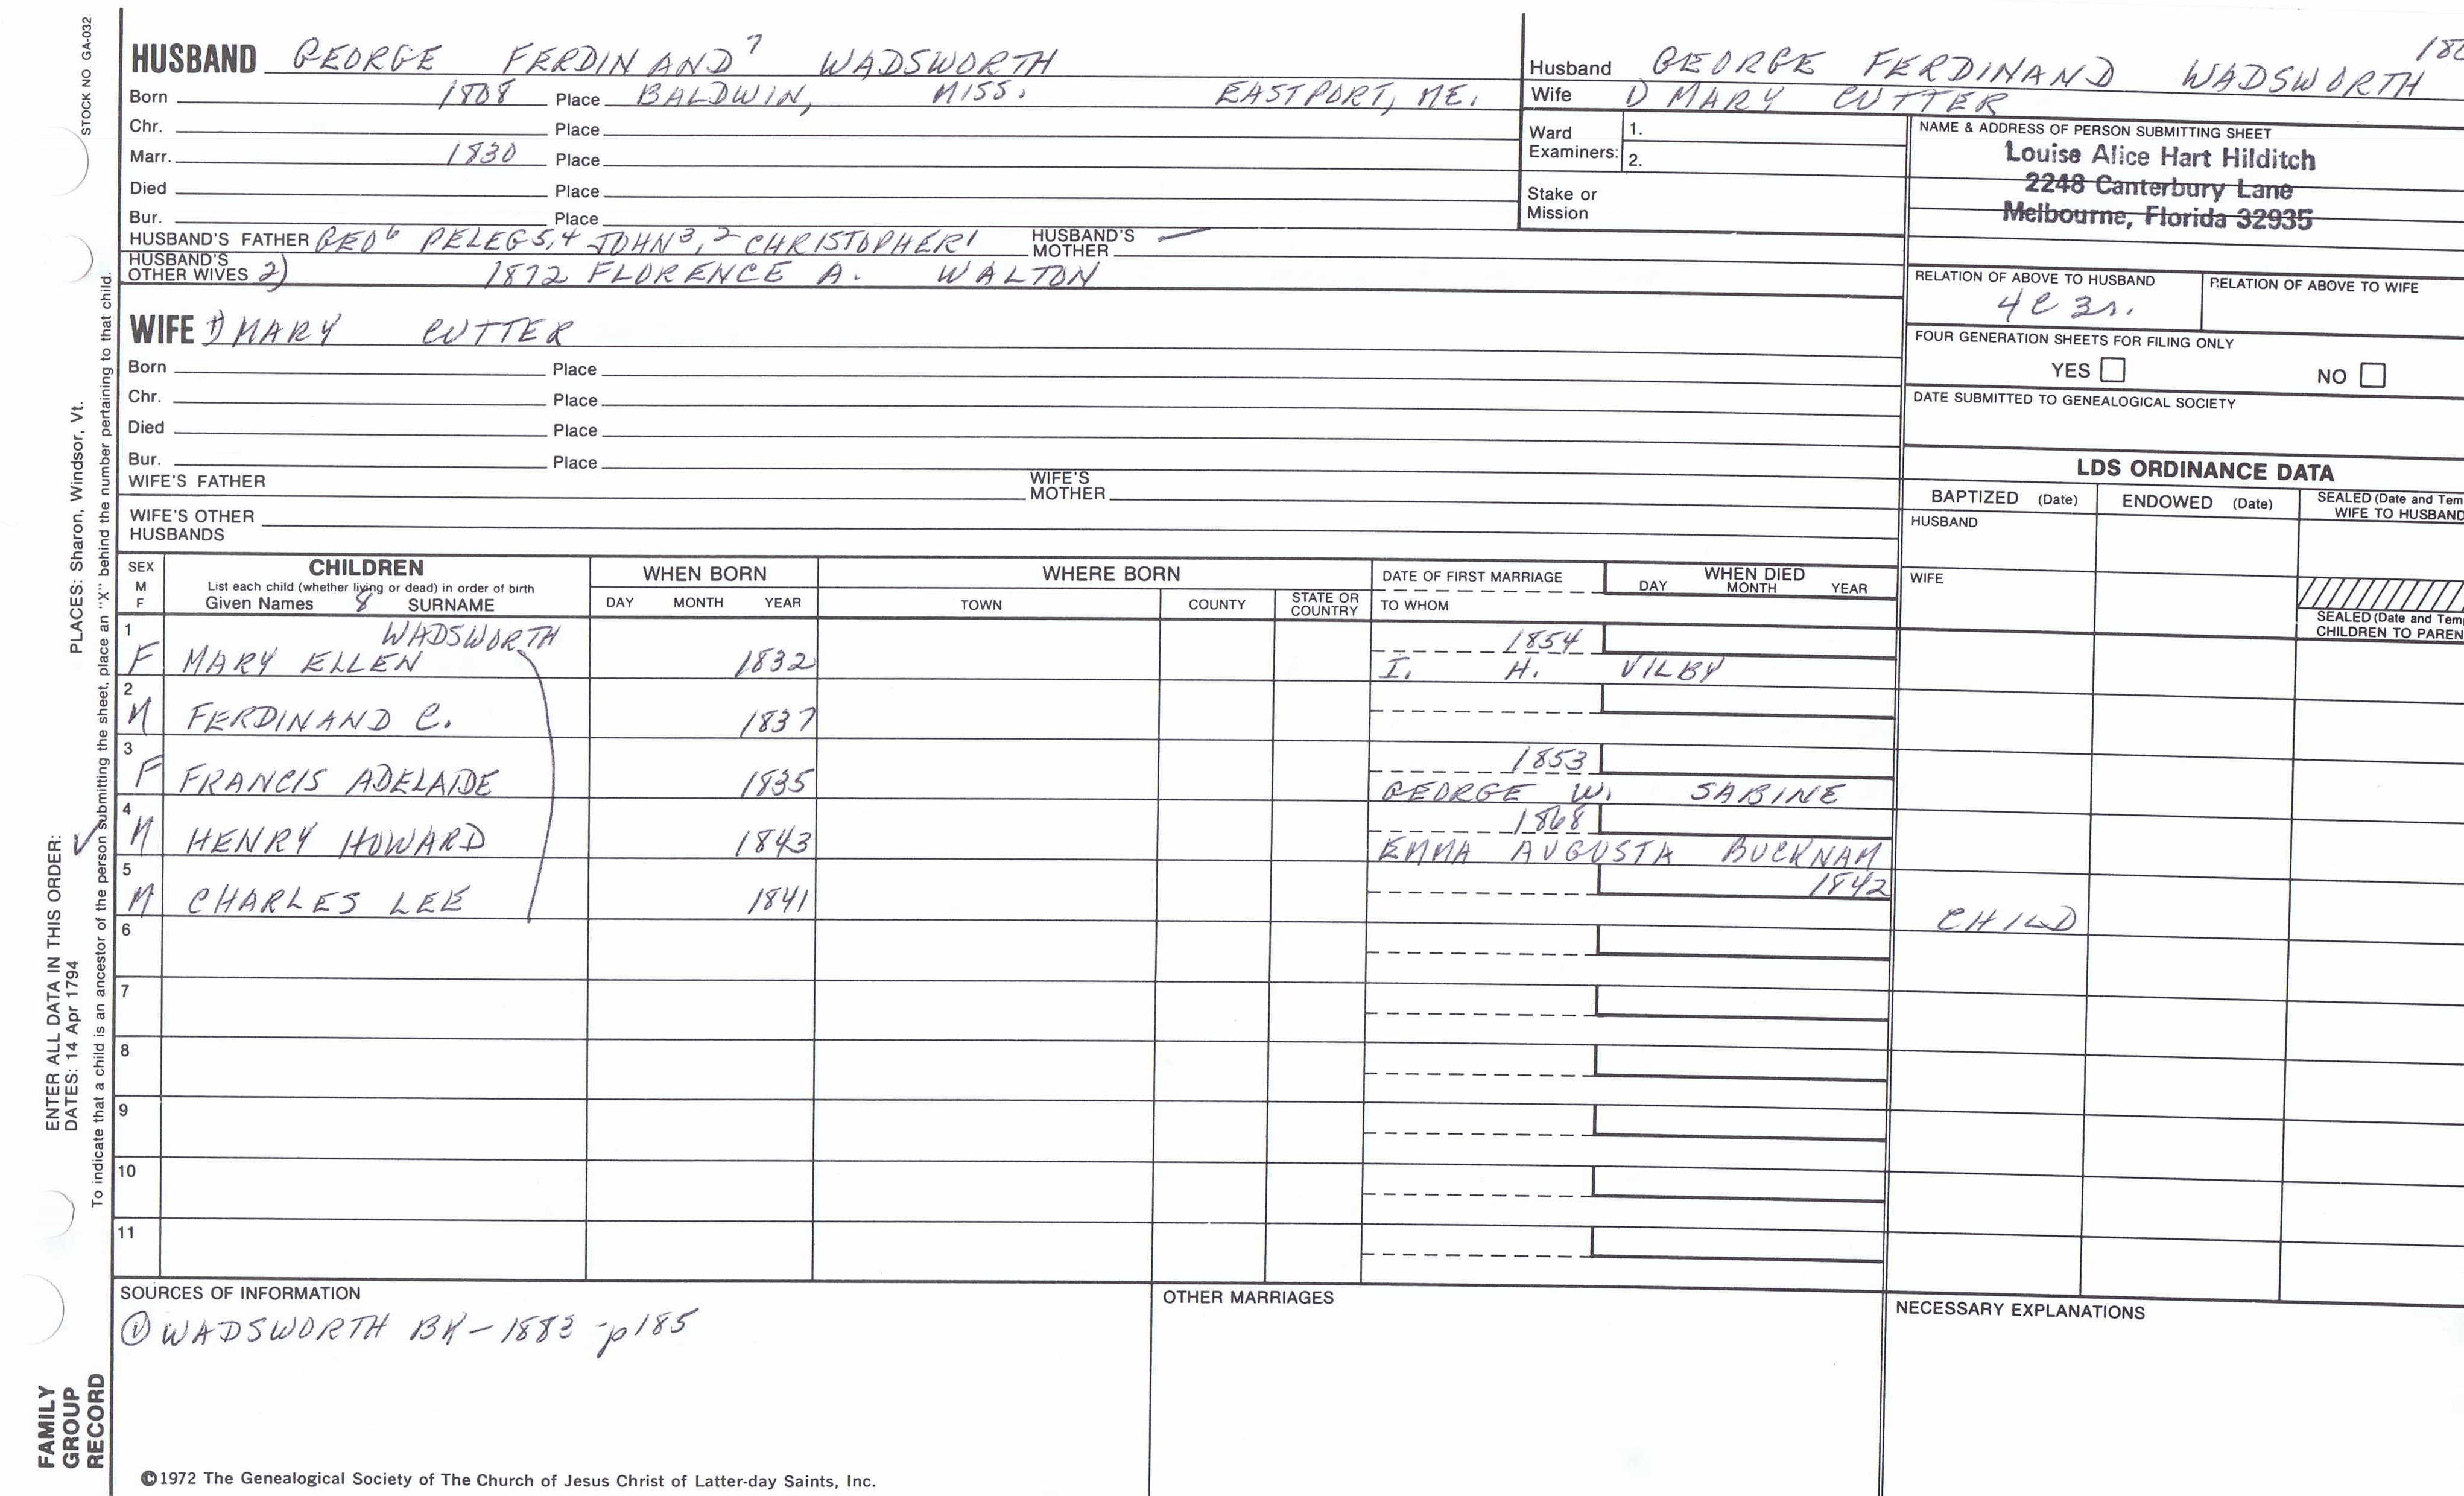 STOCK NO GA-032
HUSBAND GEORGE FERDINAND⁷ WADSWORTH
Born 1808 Place BALDWIN, MISS. EASTPORT, ME.
Chr. Place
Marr. 1830 Place
Died Place
Bur. Place
HUSBAND'S FATHER GEO⁶ PELEG⁵,⁴ JOHN³,² CHRISTOPHER¹ HUSBAND'S MOTHER —
HUSBAND'S OTHER WIVES 2) 1872 FLORENCE A. WALTON
WIFE 1) MARY CUTTER
Born Place
Chr. Place
Died Place
Bur. Place
WIFE'S FATHER WIFE'S MOTHER
WIFE'S OTHER HUSBANDS
Husband GEORGE FERDINAND WADSWORTH
Wife 1) MARY CUTTER
Ward Examiners: 1.
2.
Stake or Mission
NAME & ADDRESS OF PERSON SUBMITTING SHEET
Louise Alice Hart Hilditch
2248 Canterbury Lane
Melbourne, Florida 32935
RELATION OF ABOVE TO HUSBAND RELATION OF ABOVE TO WIFE
4C 3r.
FOUR GENERATION SHEETS FOR FILING ONLY
YES NO
DATE SUBMITTED TO GENEALOGICAL SOCIETY
LDS ORDINANCE DATA
BAPTIZED (Date) ENDOWED (Date) SEALED (Date and Tem
WIFE TO HUSBAND
HUSBAND
WIFE
SEALED (Date and Tem
CHILDREN TO PAREN
SEX M F CHILDREN WHEN BORN WHERE BORN DATE OF FIRST MARRIAGE WHEN DIED
List each child (whether living or dead) in order of birth
Given Names 8 SURNAME DAY MONTH YEAR TOWN COUNTY STATE OR COUNTRY TO WHOM DAY MONTH YEAR
1 WADSWORTH 1854
F MARY ELLEN 1832 I. H. VILBY
2
M FERDINAND C. 1837
3 1853
F FRANCIS ADELAIDE 1835 GEORGE W. SABINE
4 1868
M HENRY HOWARD 1843 EMMA AUGUSTA BUCKNAM
5 1842
M CHARLES LEE 1841 CHILD
6
7
8
9
10
11
SOURCES OF INFORMATION
① WADSWORTH BK - 1883 - p185
OTHER MARRIAGES
NECESSARY EXPLANATIONS
©1972 The Genealogical Society of The Church of Jesus Christ of Latter-day Saints, Inc.
ENTER ALL DATA IN THIS ORDER:
DATES: 14 Apr 1794 PLACES: Sharon, Windsor, Vt.
To indicate that a child is an ancestor of the person submitting the sheet, place an "X" behind the number pertaining to that child.
FAMILY
GROUP
RECORD